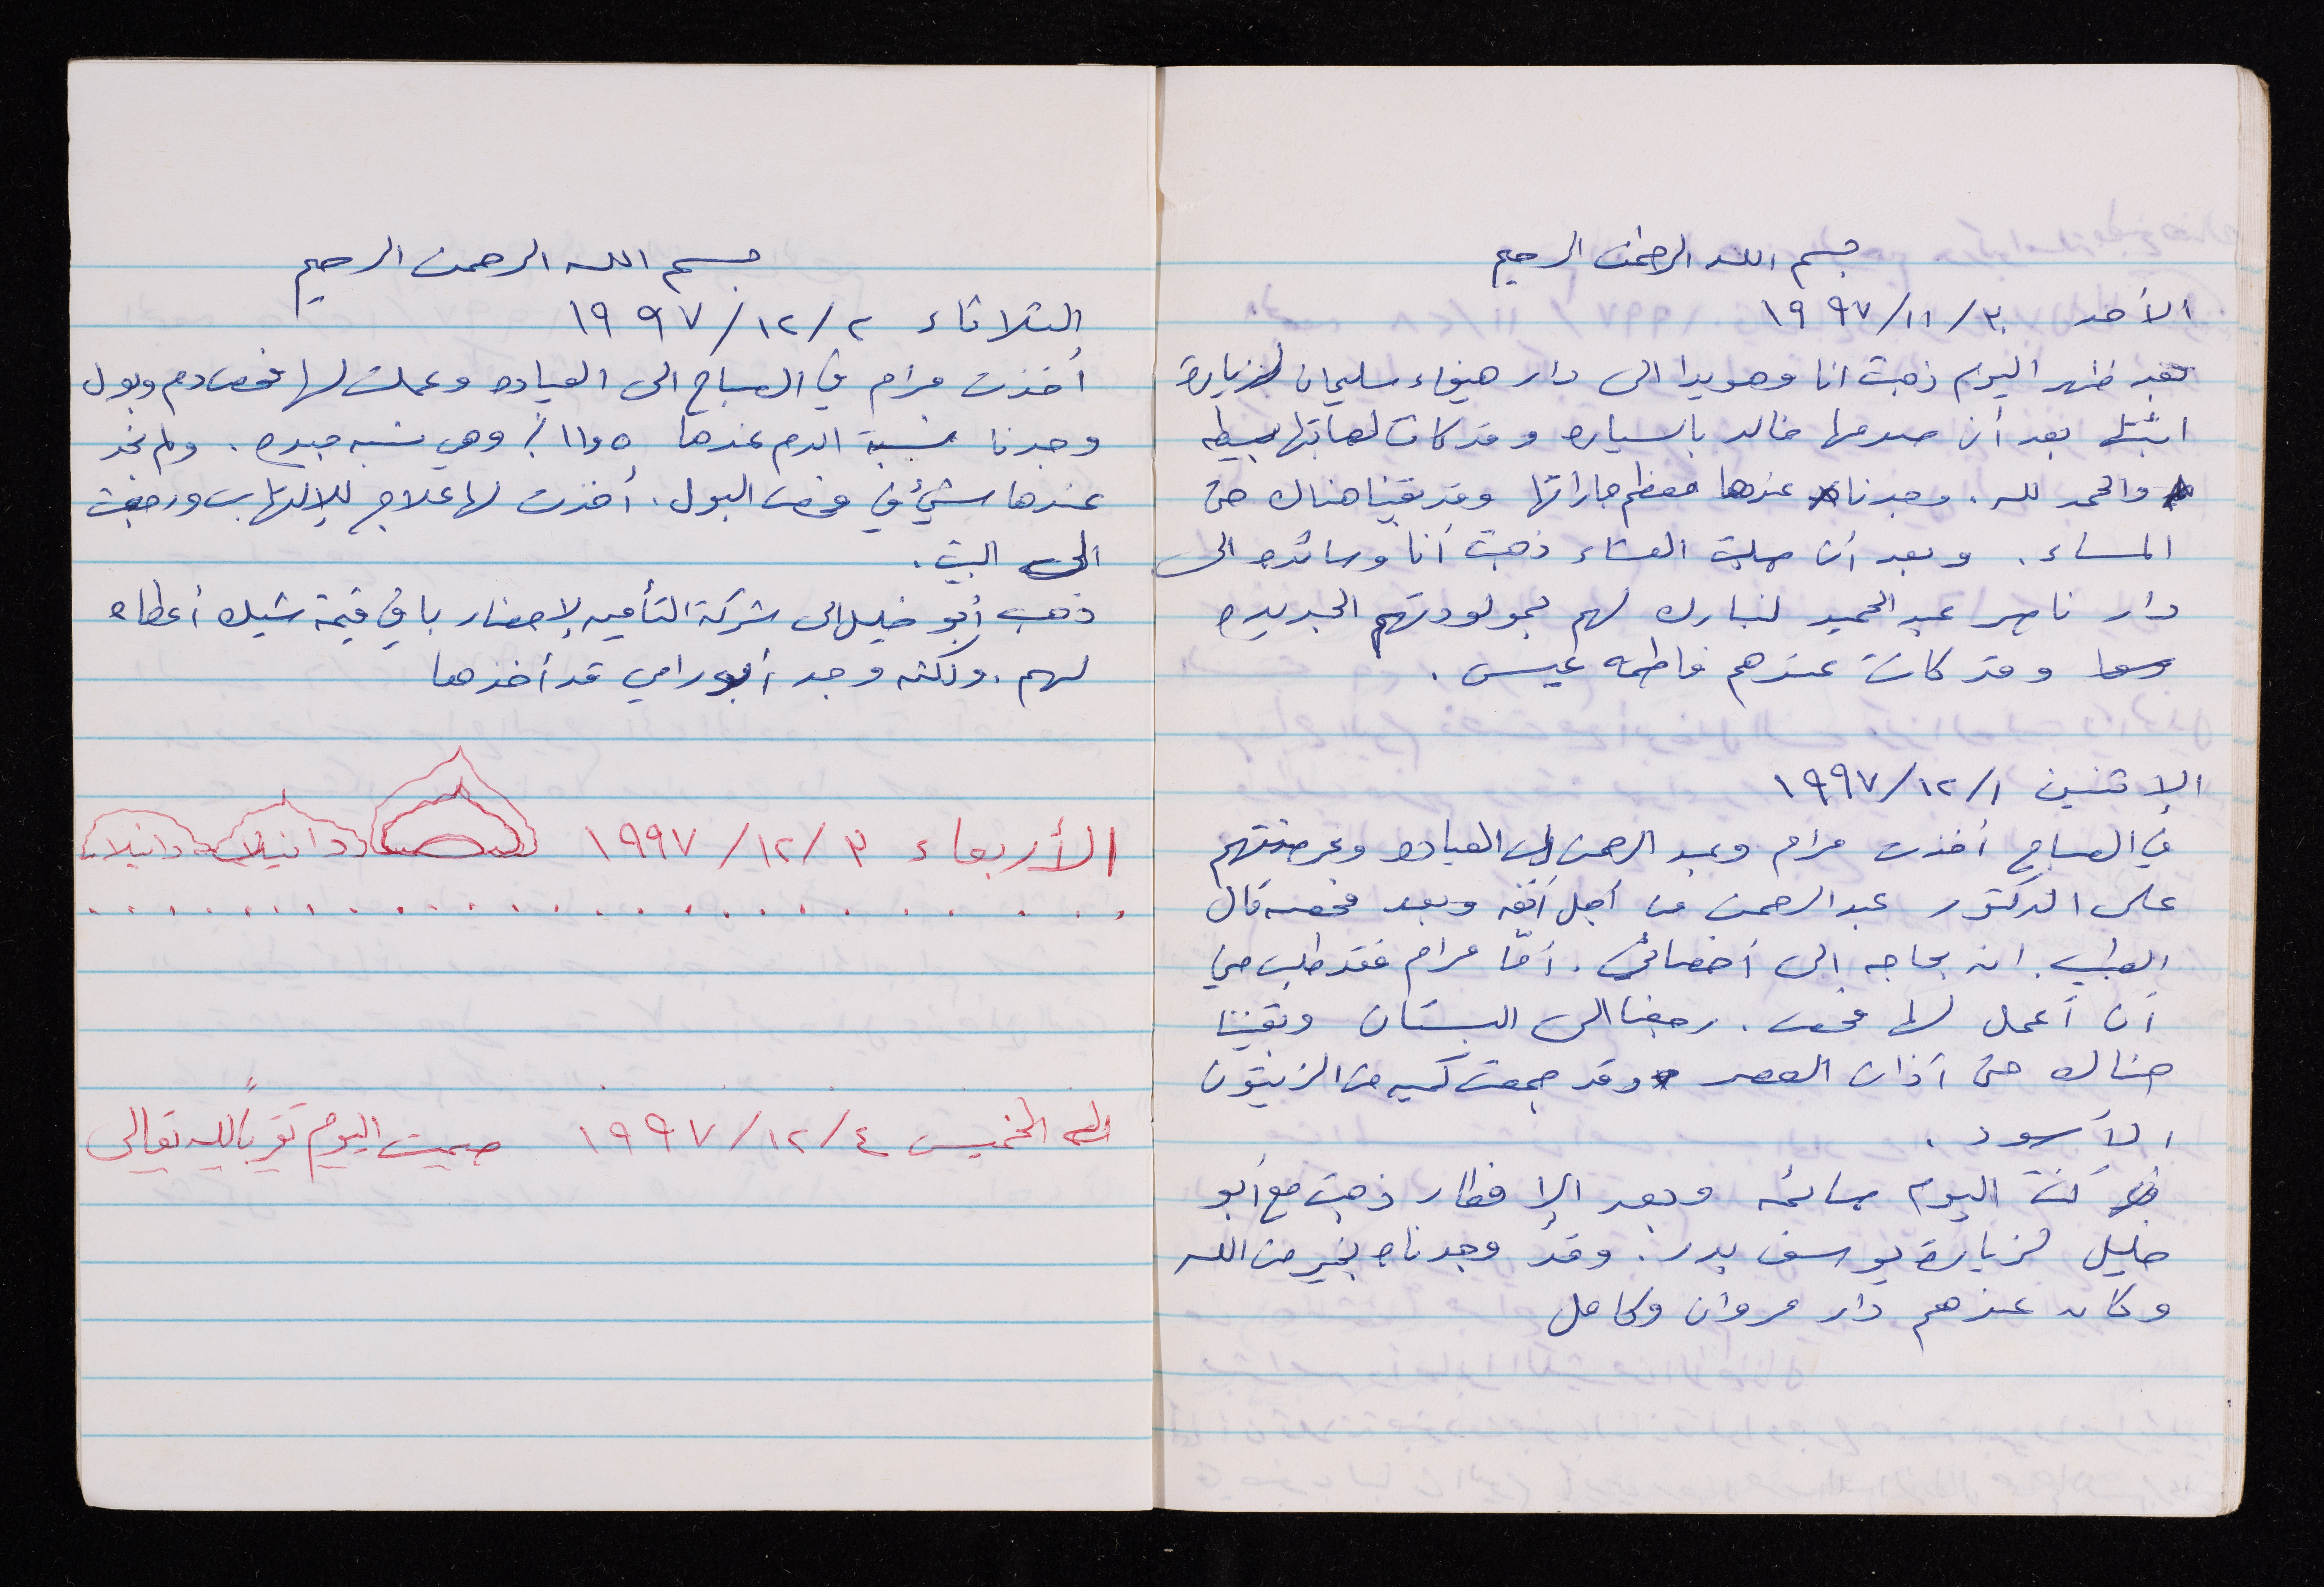 بسم الله الرحمن الرحيم
الأحد ٣٠/١١/١٩٩٧
بعد ظهر اليوم ذهبت انا وهويدا الى دار هيفاء سليمان لزيارة
ابنتها بعد أن صدمها خالد بالسياره وقد كانت اصابتها بسيطه
والحمد لله. وجدنا عندها معظم جاراتها وقد بقينا هناك حتى
المساء. وبعد أن صليت العشاء ذهبت أنا وسائده الى
دار ناصر عبد الحميد لنبارك لهم بمولودتهم الجديده
وقد كانت عندهم فاطمه عيسى.
الإثنين ١/١٢/١٩٩٧
في الصباح أخذت مرام وعبد الرحمن إلى العياده وعرضتهم
على الدكتور عبد الرحمن من أجل أنفه وبعد فحصه قال
الطبيب انه بحاجه إلى أخصائي. أمّا مرام فقد طلب مني
أن أعمل لها فحص. رجعنا الى البستان وبقينا
هناك حتى آذان العصر وقد جمعت كميه من الزيتون
الأسود.
كنت اليوم صائمه وبعد الإفطار ذهبت مع أبو
خليل لزيارة يوسف بدر. وقد وجدناه بخير من الله
وكان عندهم دار مروان وكامل
بسم الله الرحمن الرحيم
الثلاثاء ٢/١٢/١٩٩٧
أخذت مرام في الصباح الى العياده وعملت لها فحص دم وبول
وجدنا نسبة الدم عندها ١١٫٥٪ وهي نسبه جيده. ولم نجد
عندها شيئ في فحص البول. أخذت لها علاج للإلتهاب ورجعت
الى البيت.
ذهب أبو خليل الى شركة التأمين لإحضار باقي قيمة شيك أعطاه
لهم. ولكنه وجد أبو رامي قد أخذها
الأربعاء ٣/١٢/١٩٩٧
. . . . . . . . . . . . . . . . . . . . . . . .
الخميس ٤/١٢/١٩٩٧ صمت اليوم تقرباً لله تعالى